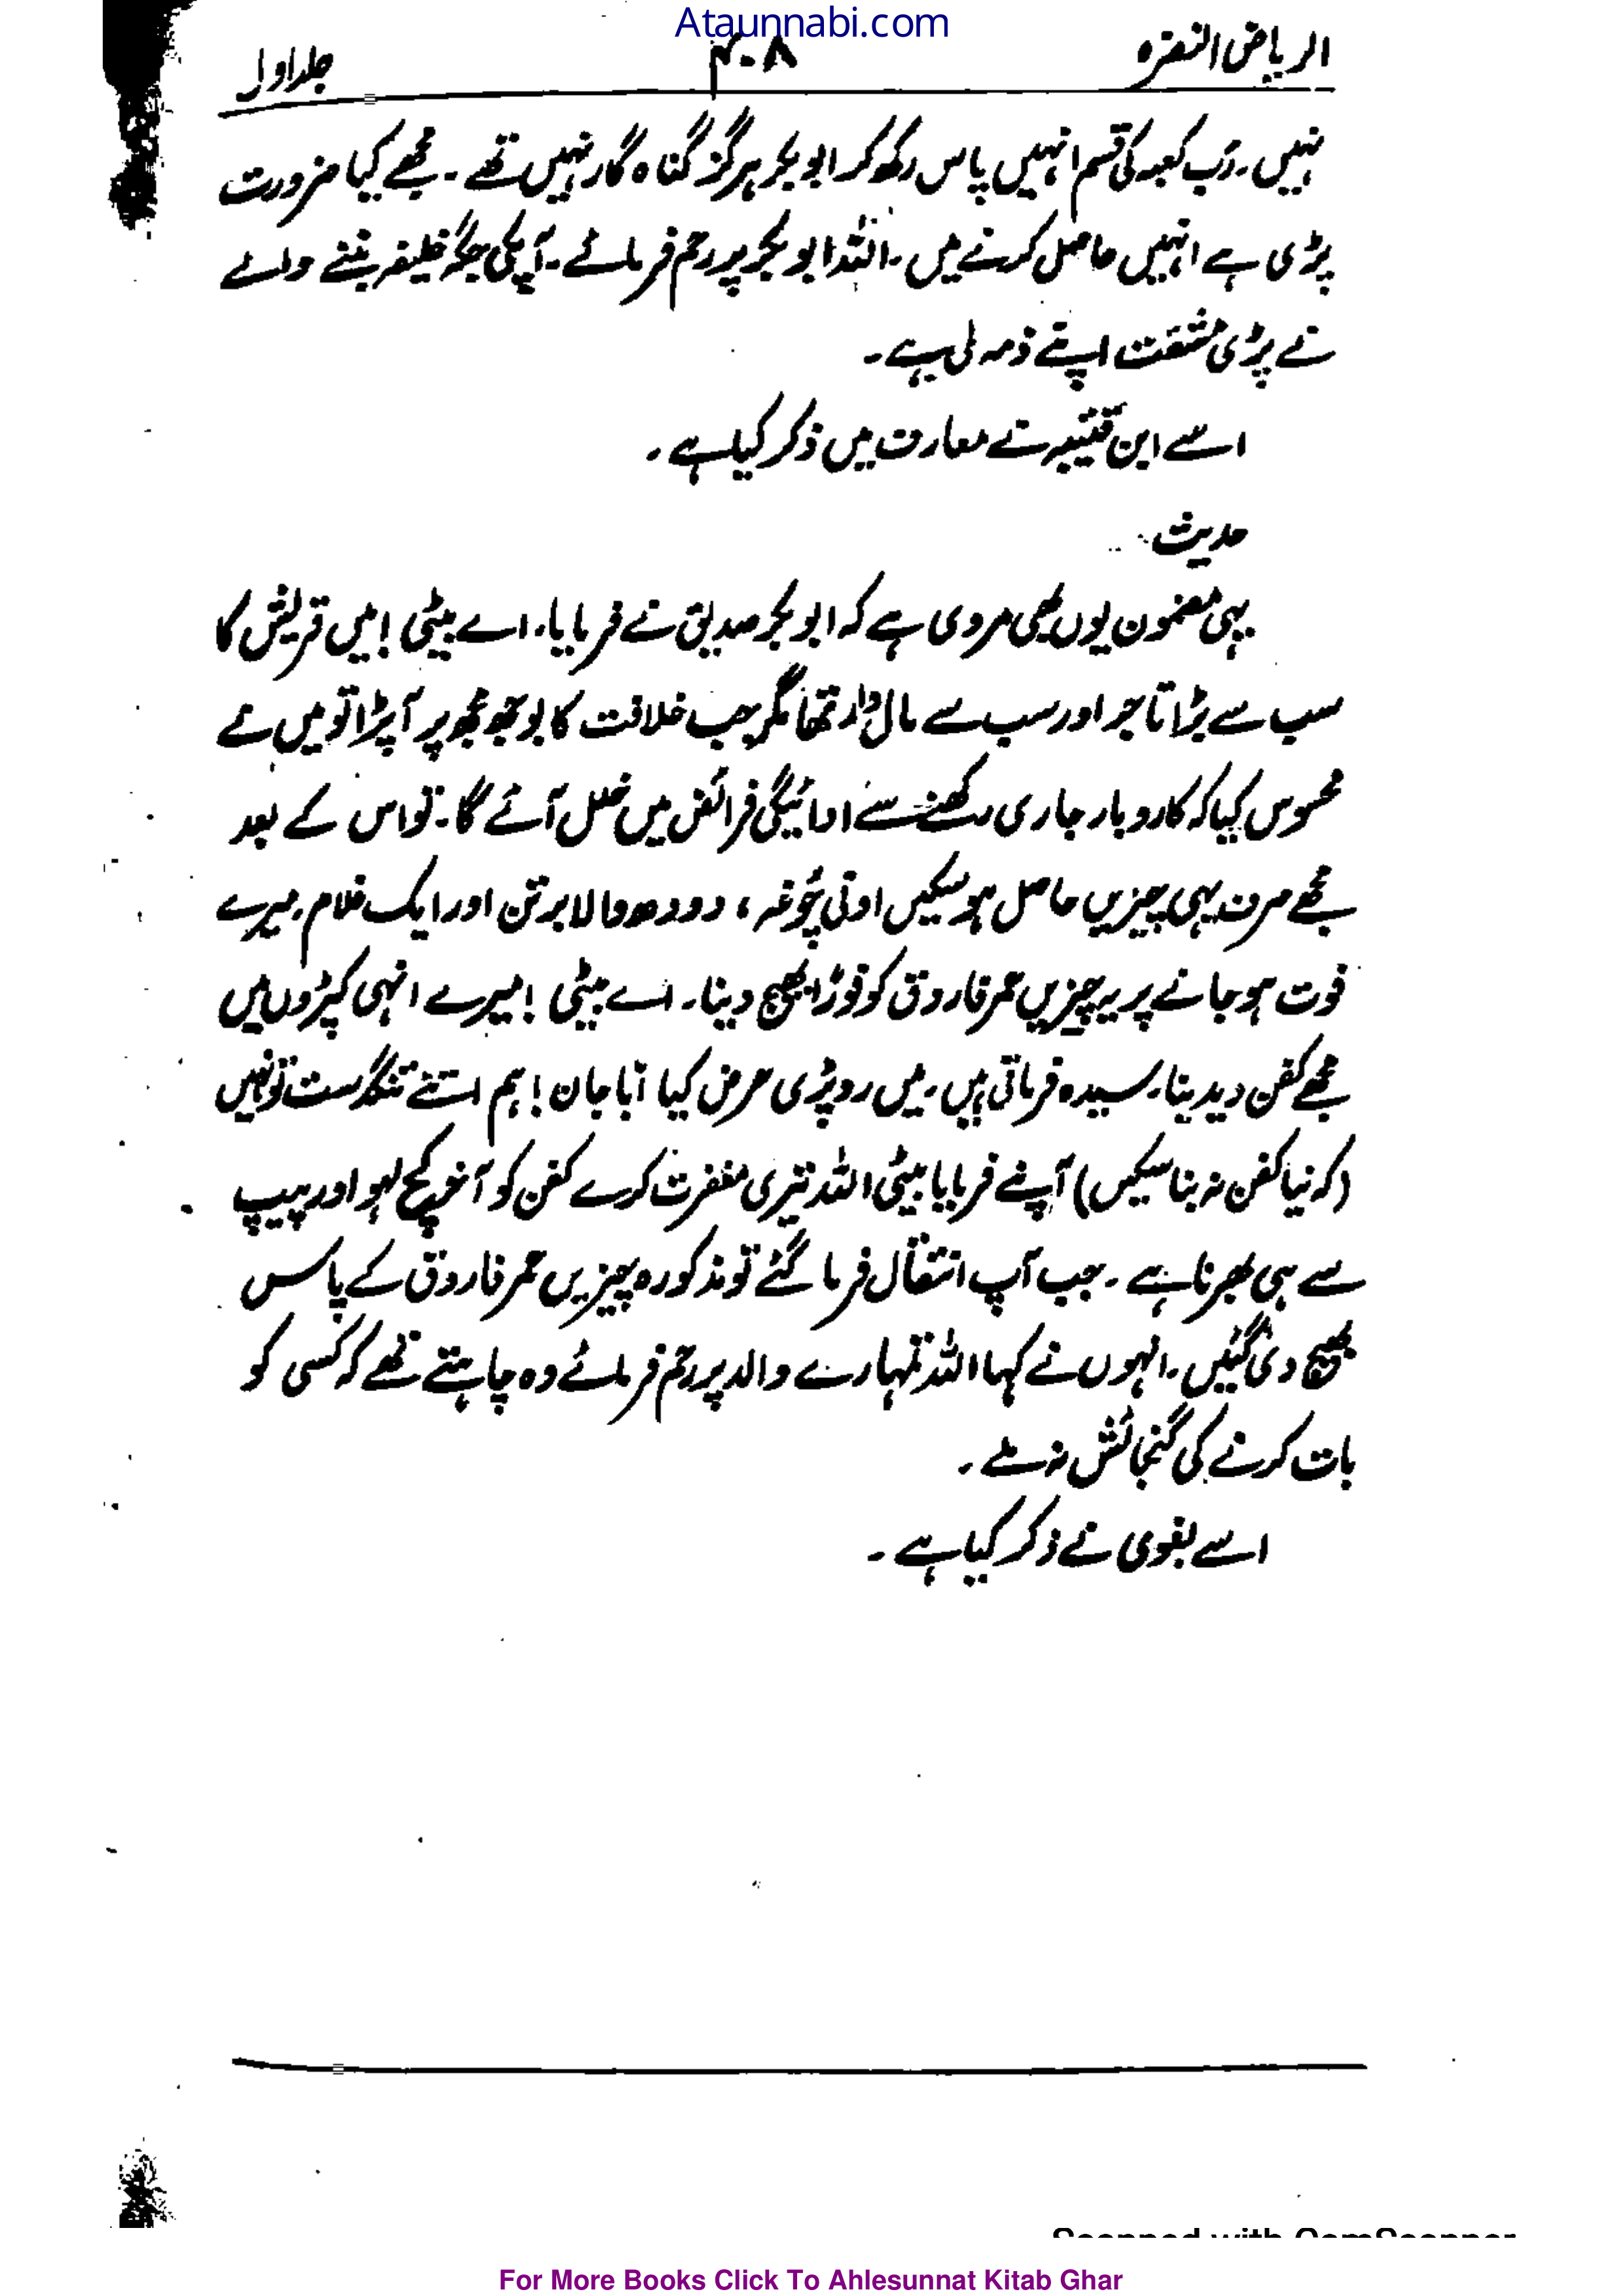 Ataunnabi.com
الریاض النضرہ ۴۰۸ جلد اول
نہیں۔ رَب کعبہ کی قسم انہیں پاس رکھ کر ابوبکر ہرگز گناہ گار نہیں تھے۔ مجھے کیا ضرورت
پڑی ہے انہیں حاصل کرنے میں۔ اللہ ابوبکر پر رحم فرمائے۔ آپ کی جگہ خلیفہ بننے والے
نے بڑی مشقت اپنے ذمہ لی ہے۔
اسے ابن قتیبہ نے معارف میں ذکر کیا ہے۔
حدیث
یہی مضمون یوں بھی مروی ہے کہ ابوبکر صدیق نے فرمایا۔ اے بیٹی! میں قریش کا
سب سے بڑا تاجر اور سب سے مال دار تھا مگر جب خلافت کا بوجھ مجھ پر آ پڑا تو میں نے
محسوس کیا کہ کاروبار جاری رکھنے سے ادائیگی فرائض میں خلل آئے گا۔ تو اس کے بعد
مجھے صرف یہی چیزیں حاصل ہو سکیں اونی چُوغہ، دودھ والا برتن اور ایک غلام۔ میرے
فوت ہو جانے پر یہ چیزیں عمر فاروق کو فوراً بھیج دینا۔ اے بیٹی! میرے انہی کپڑوں میں
مجھے کفن دیدینا۔ سیدہ فرماتی ہیں۔ میں رو پڑی عرض کیا ابا جان! ہم اتنے تنگدست تو نہیں
(کہ نیا کفن نہ بنا سکیں) آپ نے فرمایا بیٹی اللہ تیری مغفرت کرے کفن کو آخر کچ لہو اور پیپ
سے ہی بھرنا ہے۔ جب آپ انتقال فرما گئے تو مذکورہ چیزیں عمر فاروق کے پاس
بھیج دی گئیں۔ انہوں نے کہا اللہ تمہارے والد پر رحم فرمائے وہ چاہتے تھے کہ کسی کو
بات کرنے کی گنجائش نہ ملے۔
اسے بغوی نے ذکر کیا ہے۔
Scanned with CamScanner
For More Books Click To Ahlesunnat Kitab Ghar